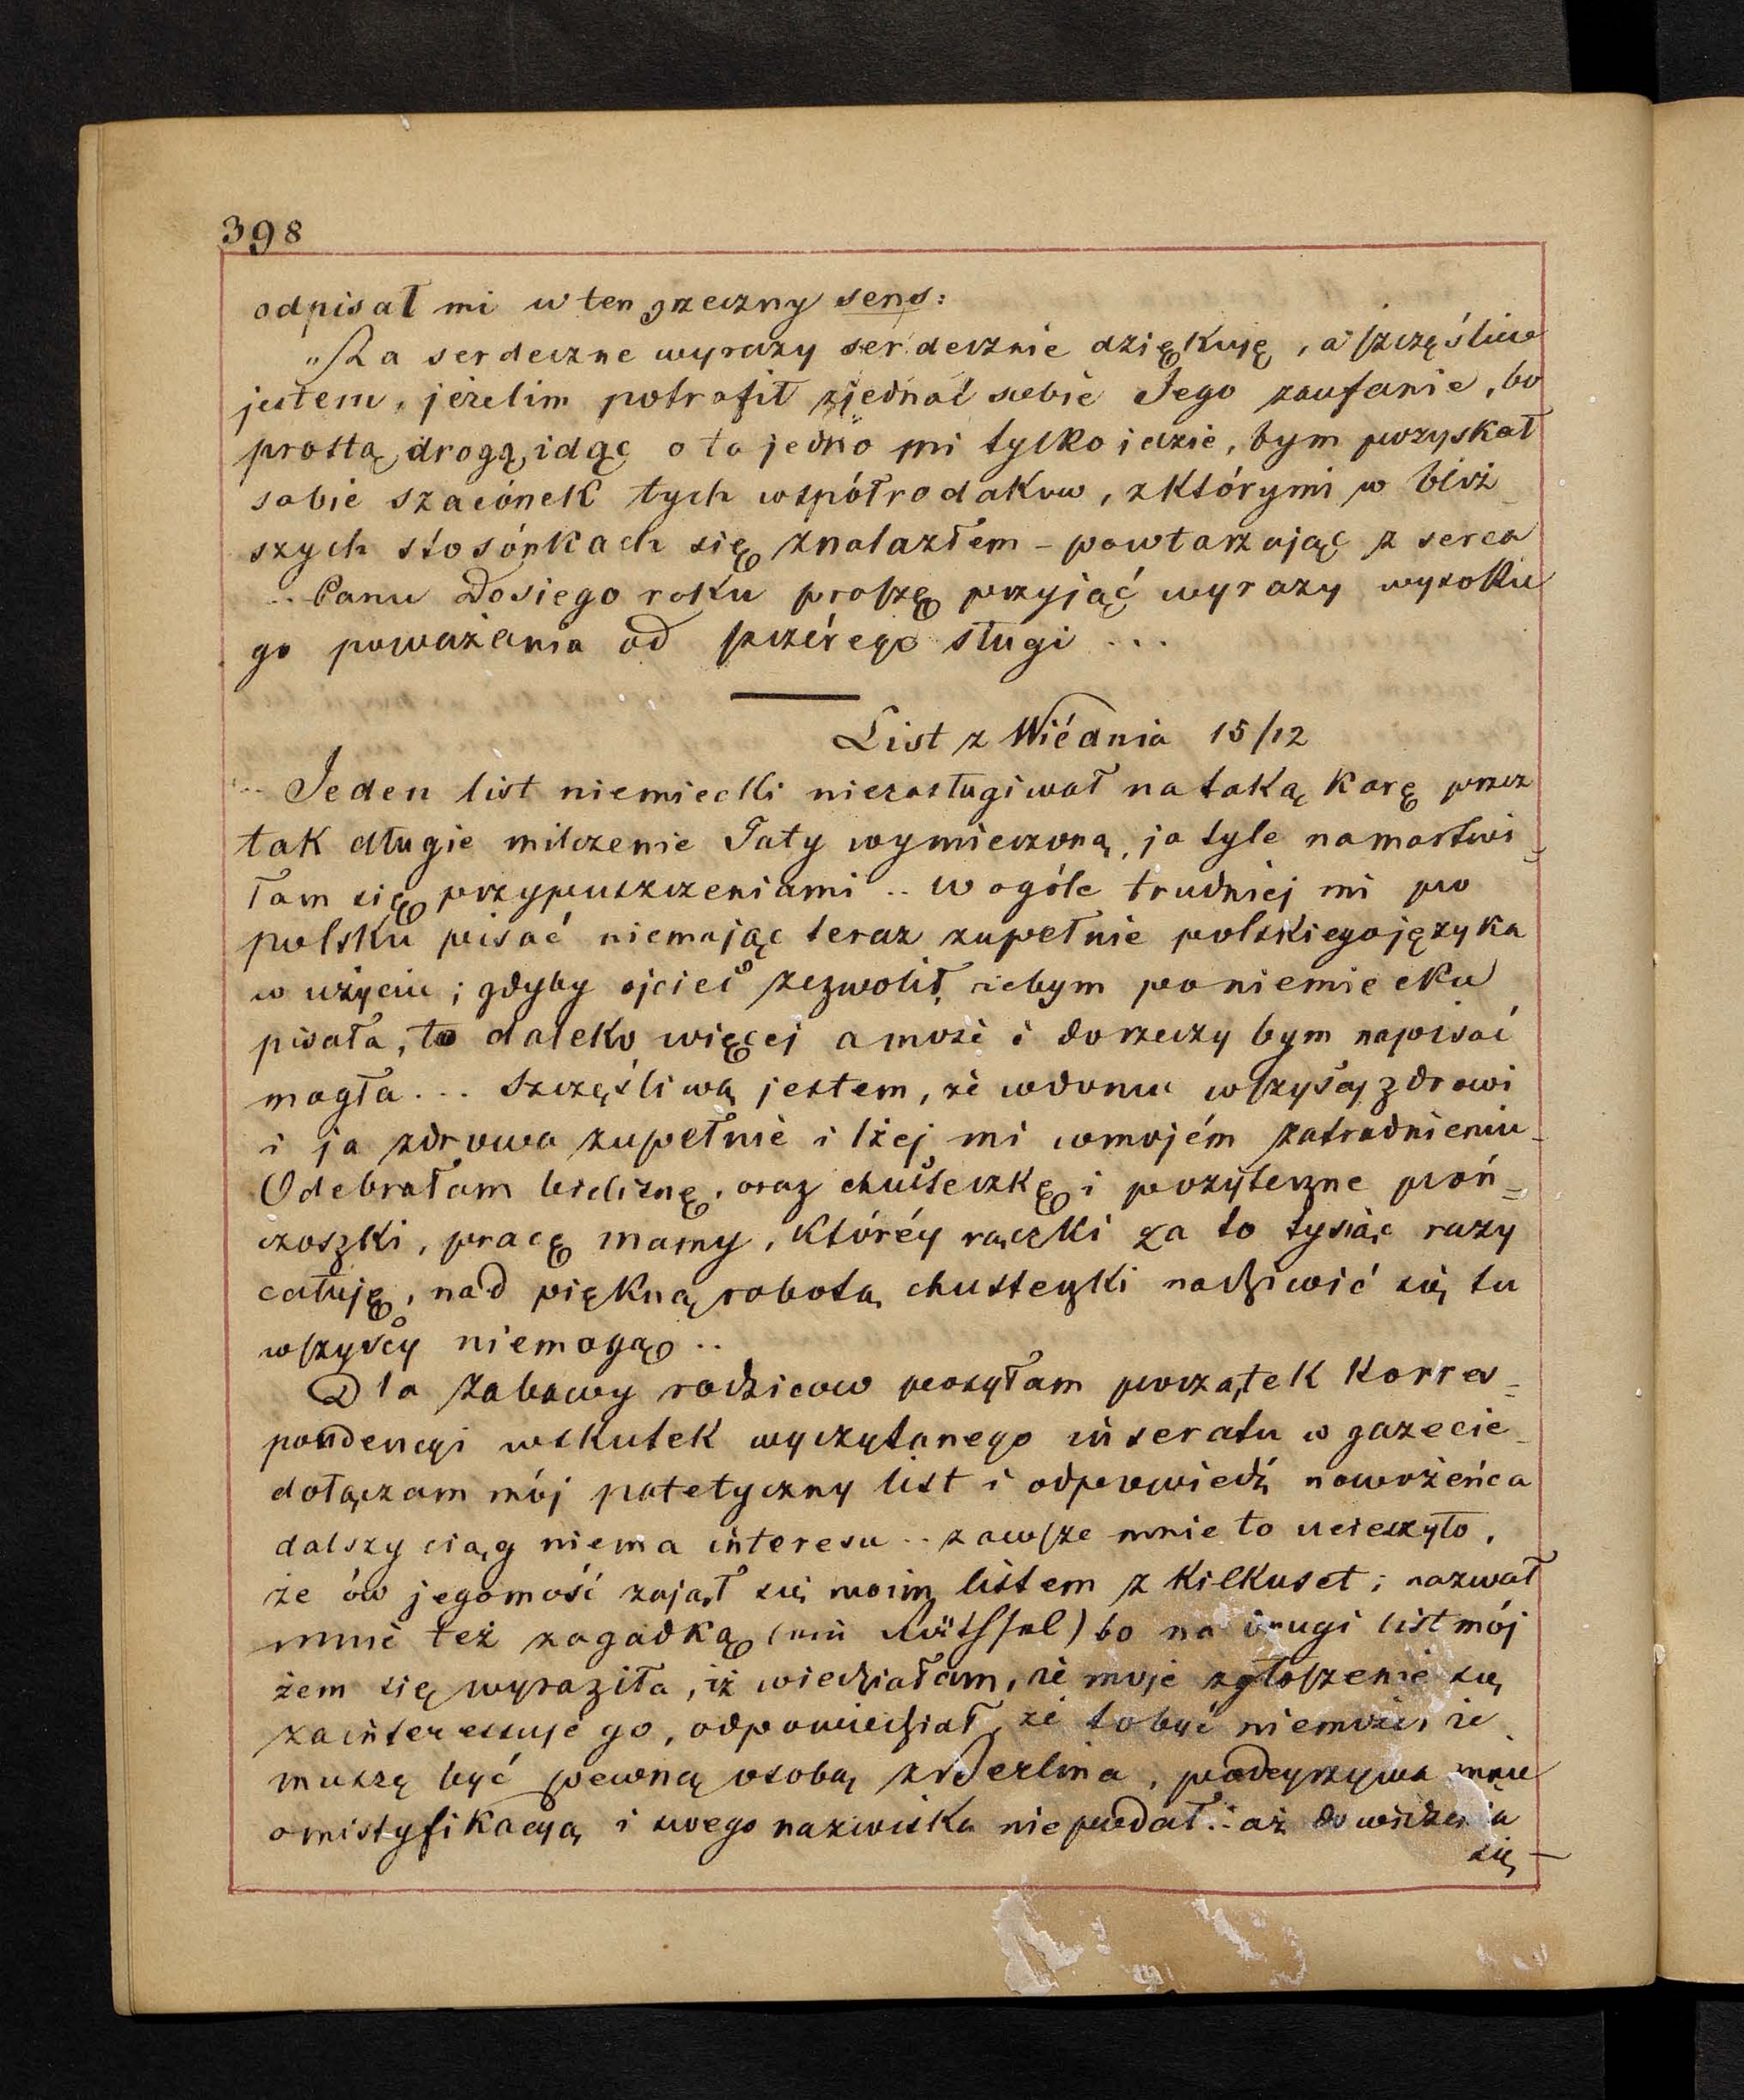 398
odpisał mi w ten grzeczny sens:
"Za serdeczne wyrazy serdecznie dziękuję, a szczęśliw
jestem, jeżelim potrafił zjednać sobie Jego zaufanie, bo
prostą drogą idąc o to jedno mi tylko idzie, bym pozyskał
sobie szacónek tych współrodaków, z którymi w bliż
szych stosónkach się znalazłem – powtarzając z serca
.. Panu Dosiego roku proszę przyjąć wyrazy wysokie
go poważania od szczérego sługi ...
List z Wiédnia 15/12
.. Jeden list niemiecki niezasługiwał na taką karę przez
tak długie milczenie Taty wymierzoną, ja tyle namartwi=
łam się przypuszczeniami .. w ogóle trudniej mi po
polsku pisać niemając teraz zupełnie polskiego języka
w użyciu; gdyby ojciec zezwolił, żebym po niemiecku
pisała, to daleko więcej a może i dorzeczy bym napisać
mogła ... Szczęśliwą jestem, że w domu wszyscy zdrowi
i ja zdrowa zupełnie i lżej mi w mojém zatrudnieniu –
Odebrałam bieliznę, oraz chusteczkę i pożyteczne poń=
czoszki, pracę mamy, któréy rączki za to tysiąc razy
całuję, nad piękną robotą chusteczki nadziwić się tu
wszyscy niemogą ..
Dla zabawy rodziców posyłam początek korres=
pondencyi wskutek wyczytanego inseratu w gazecie –
dołączam mój patetyczny list i odpowiedź nowożeńca
dalszy ciąg niema interesu .. zawsze mnie to ucieszyło,
że ów jegomość zajął się moim listem z kilkuset; nazwał
mnie też zagadką (ein Räthsel) bo na drugi list mój
żem się wyraziła, iż wiedziałam, że moje zgłoszenie się
zainteressuje go, odpowiedział, że to być niemoże, że
muszę być pewną osobą z Berlina, podeyrzywa mnie
o mistyfikacyą i swego nazwiska nie podał .. aż do widzenia
się –